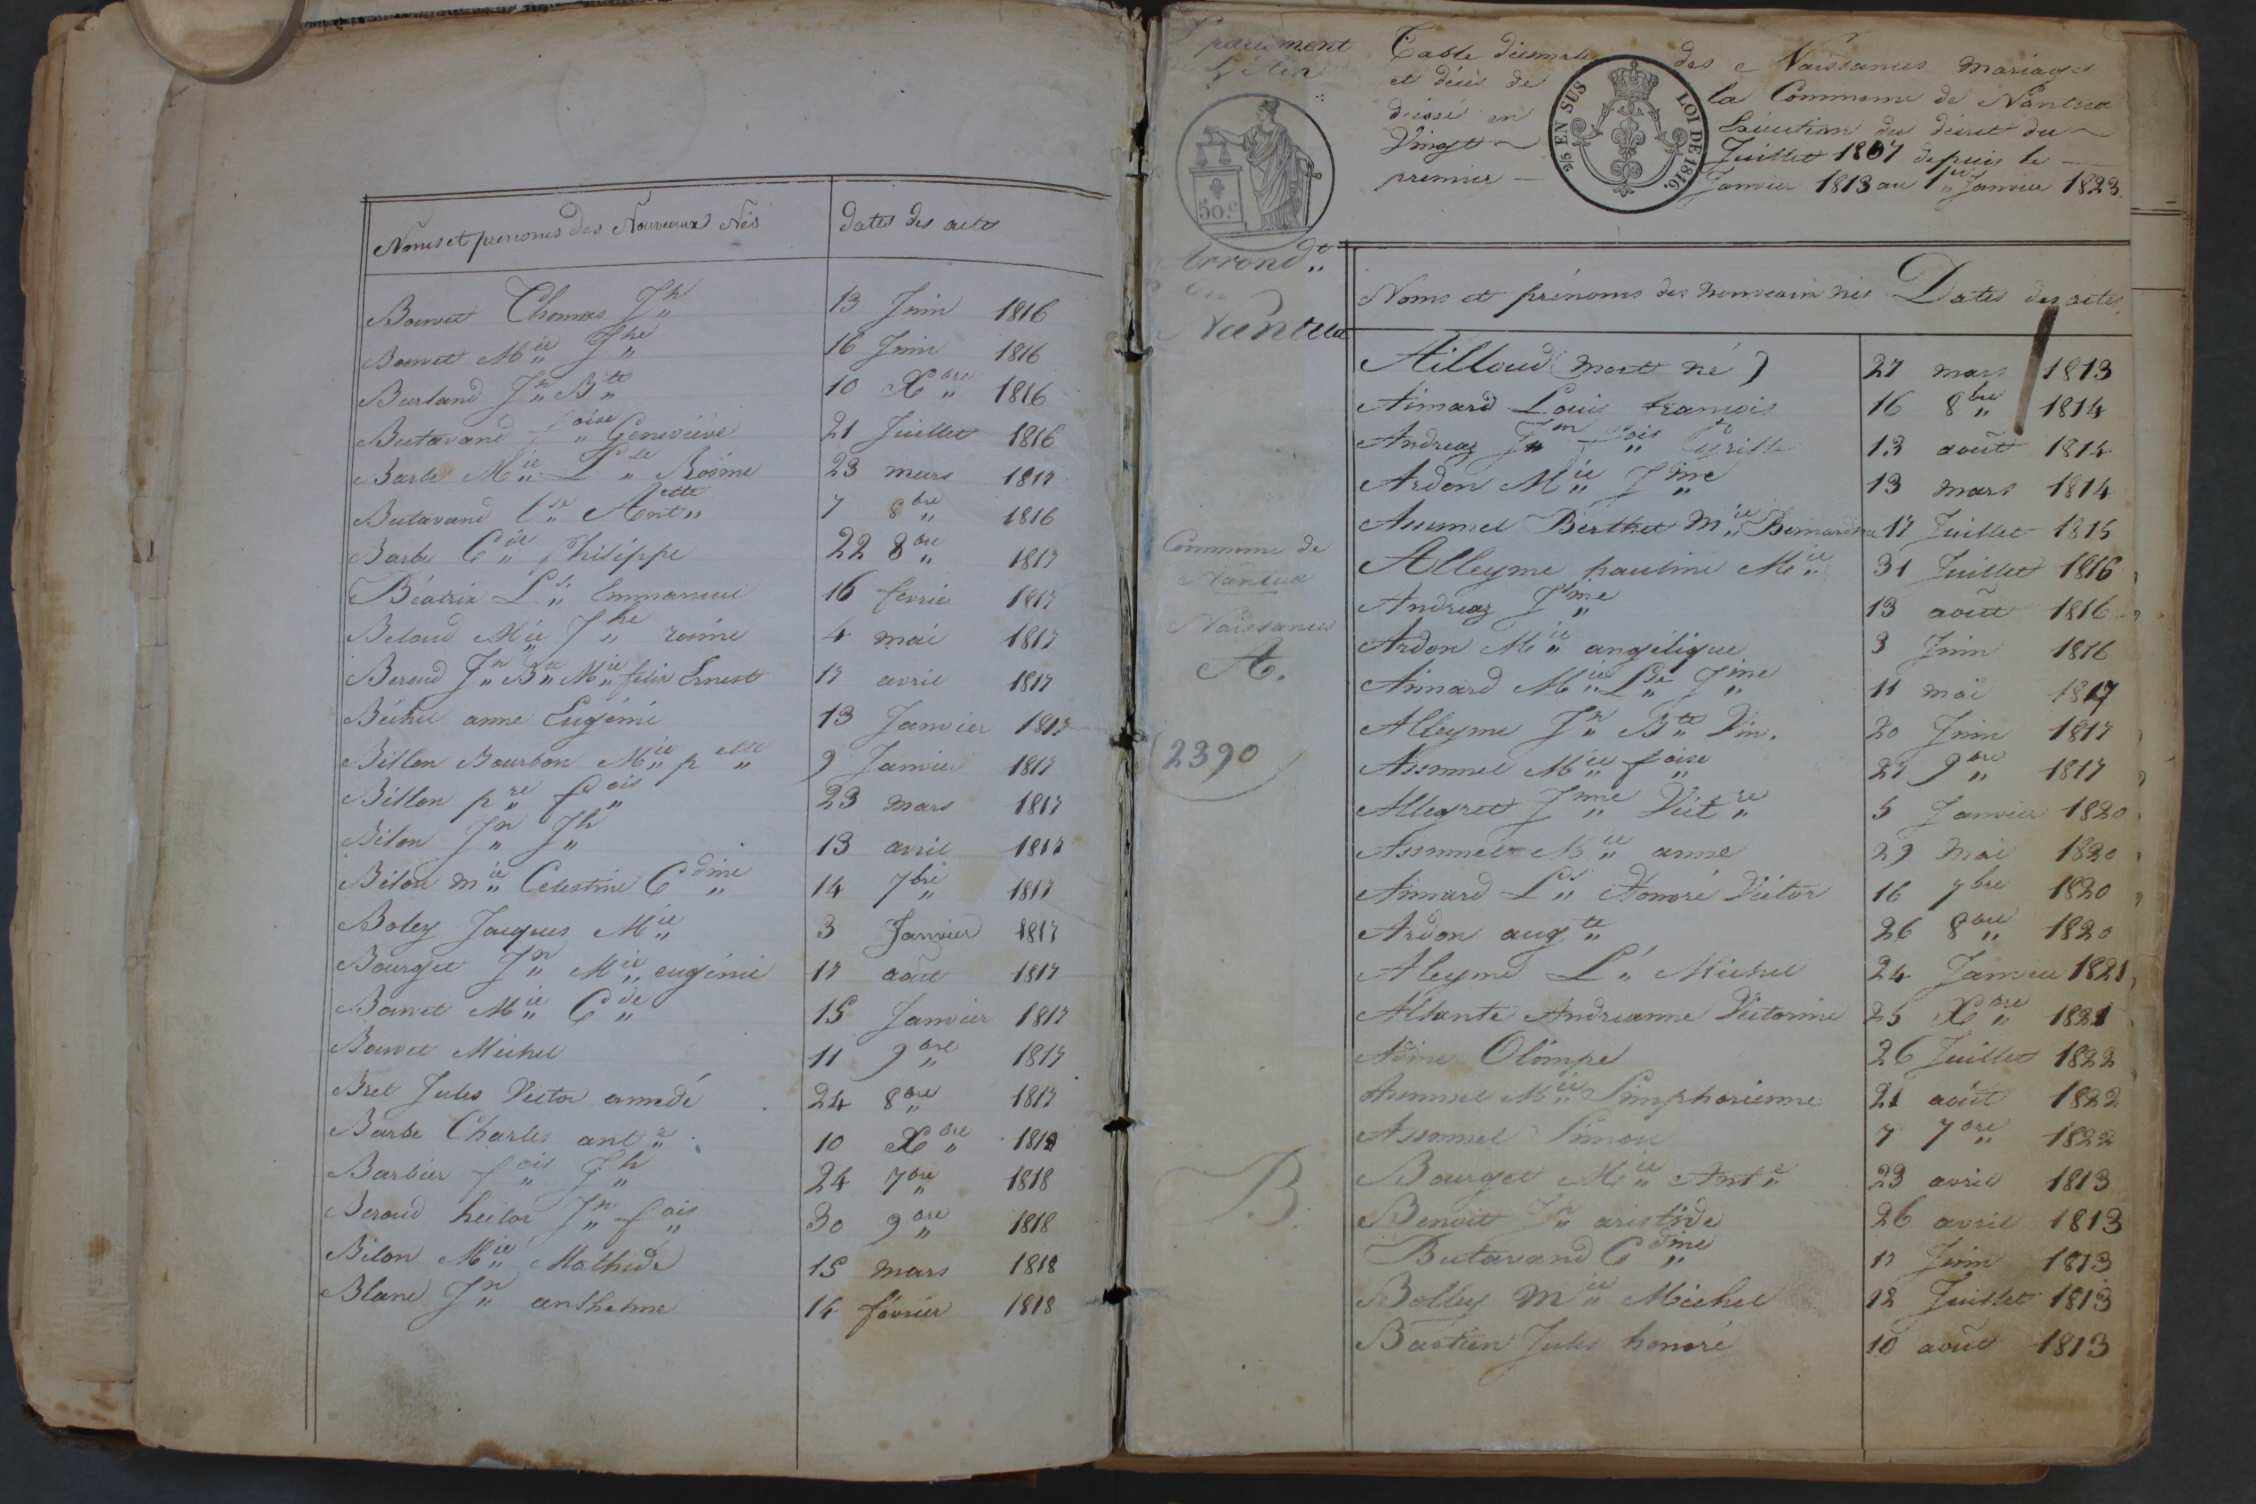 Noms et prenoms des Nouveaux Nés dates des actes
Bouvet Thomas Jh 13 Juin 1816
Bouvet Mie Jhe 16 Juin 1816
Burland Jn Bte 10 Xbre 1816
Butavand foise Geneviève 21 Juillet 1816
Barbe Mie Lse Rosine 23 mars 1817
Butavand Antette 7 8bre 1816
Barbe Cie Philippe 22 8bre 1817
Béatrix Ls Emmanuel 16 fevrier 1817
Beloud Mie Jhe rosine 4 mai 1817
Beroud Jn Bte Mie felix Ernest 17 avril 1817
anne Eugénie 13 Janvier 1817
Billon Bourbon Mie pette 9 Janvier 1817
Billon pre fois 23 mars 1817
Bilon Jn Jh 13 avril 1817
Bilon mie Celestine Cdine 14 7bre 1817
Boley Jacques Mie 3 Janvier 1817
Bourget Jn Mie eugénie 17 août 1817
Bouvet Mie Cde 15 Janvier 1817
Bouvet Michel 11 9bre 1817
Bret Jules Victor amedé 24 8bre 1817
Barbe Charles ante 10 Xbre
Barbier fois Jh 24 7bre 1818
Beroud hector Jn fois 30 9bre 1818
Bilon Mie Mathide 15 mars 1818
Blanc Jn anthelme 14 février 1818
Table décennale des Naissances mariages
et décès de la Commune de Nantua
dressé en Exécution du décret du
Vingt Juillet 1807 depuis le
premier Janvier 1813 au 1er Janvier 1823
2/5 EN SUS LOI DE 1816.
50.c
Arrondt
Nantua
Commune de
Nantua
Naissances
A.
2390
B.
Noms et prénoms des nouveaux nés Dates des actes
Ailloud (mort né) 27 mars 1813
Aimard Louis francois 16 8bre 1814
Andreaz fois 13 août 1814
Ardon Mie Jine 13 mars 1814
Assumel Berthet Mie Bernardine 17 Juillet 1815
Alleyme pauline Mie 31 Juillet 1816
Andreaz Jme 13 août 1816
Ardon Mie angélique 3 Juin 1816
Aimard Mie Lse Jine 11 mai 1817
Alleyme Jn Bte Vin. 20 Juin 1817
Assumel Mie foise 27 9bre 1817
Allegret Jnne Victre 5 Janvier 1820
Assumel Mie anne 29 Mai 1820
Aimard Ls honoré Victor 16 7bre 1820
Ardon augte 26 8bre 1820
Aleyme Ls Michel 24 Janvier 1821
Allante Andreanne Victorine 25 Xbre 1821
Olimpe 26 Juillet 1822
Assumel Mie Simphorienne 21 août 1822
Assumel Simon 7 7bre 1822
Bourget Mie Ante 23 avril 1813
Benoit Jn aristide 26 avril 1813
Butavand Cdine 17 Juin 1813
Bolley Mie Michel 12 Juillet 1813
Bastien Jules honoré 10 août 1813